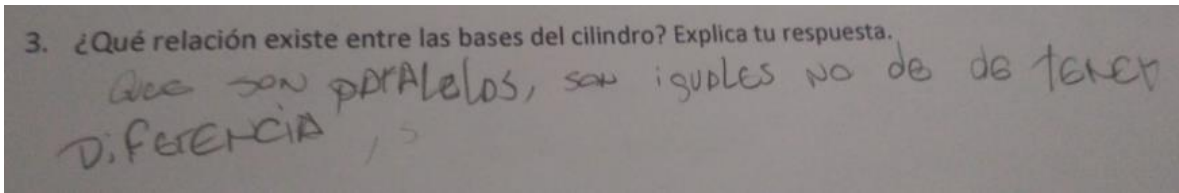 3. ¿Qué relación existe entre las bases del cilindro? Explica tu respuesta.
Que son paralelos, son iguales no de de tener
Diferencia